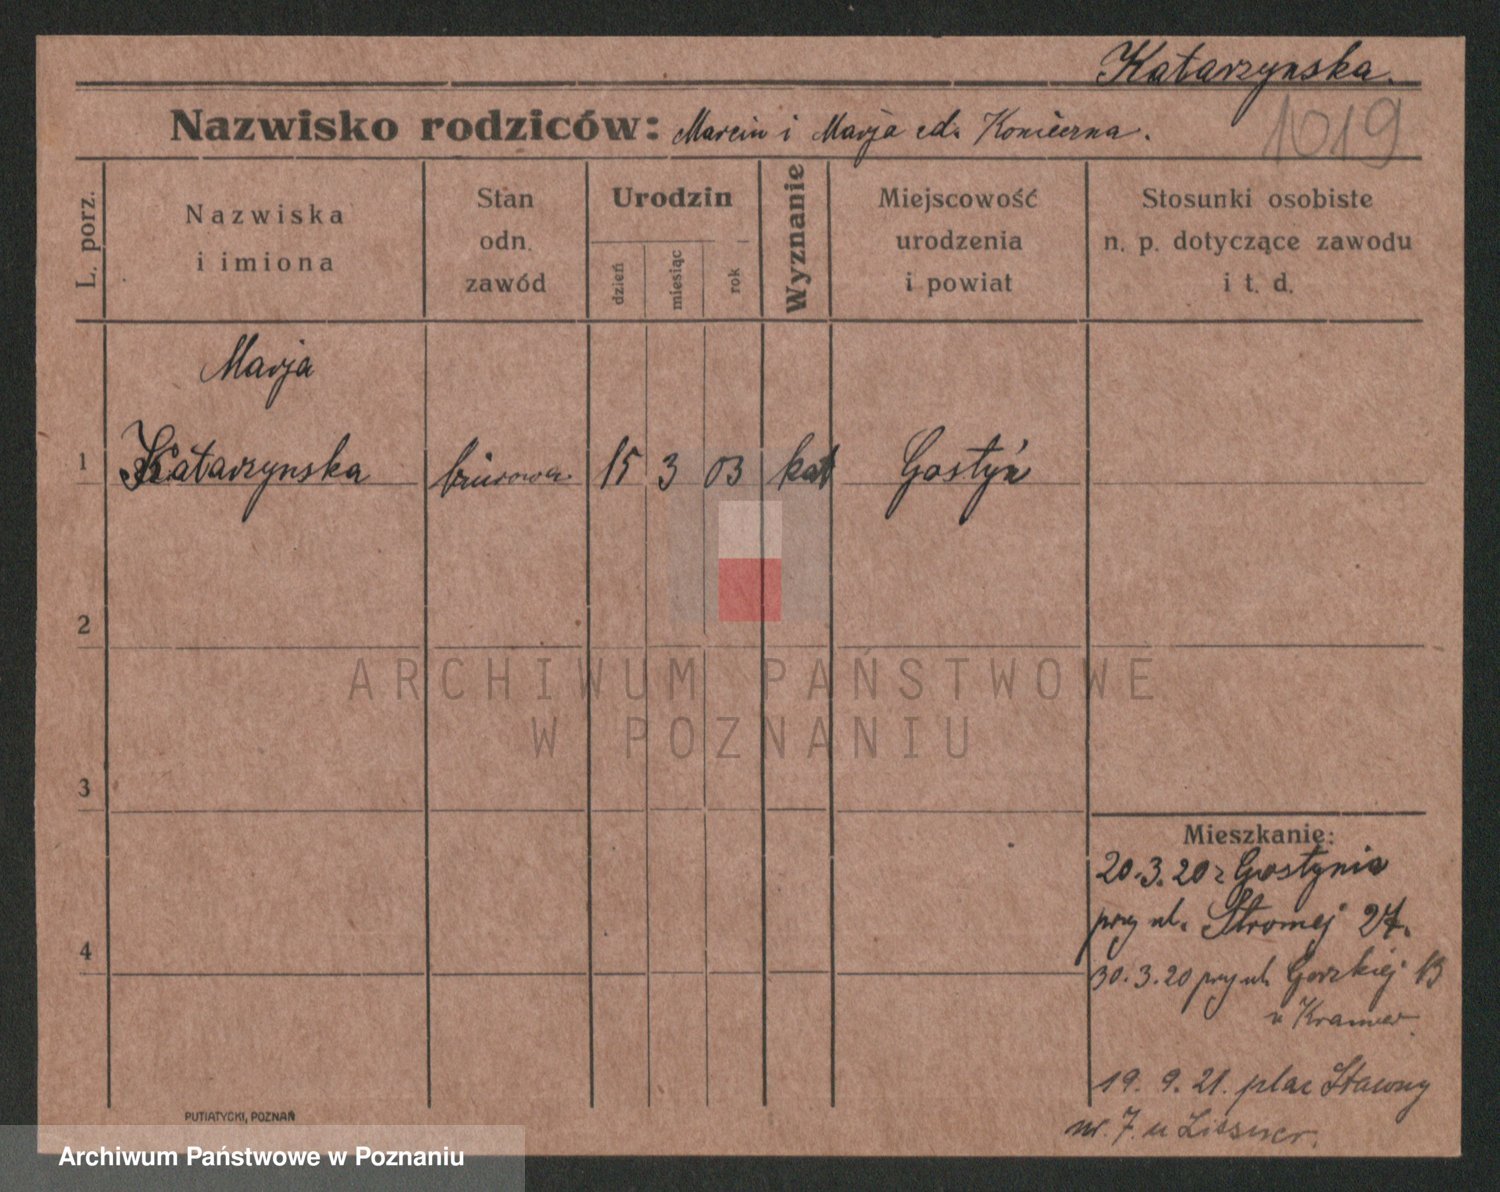 Katarzynska.
1019
Nazwisko rodziców: Marcin i Marja cd. Konieczna.
L. porz.
Nazwiska
i imiona
Stan
odn.
zawód
Urodzin
dzień
miesiąc
rok
Wyznanie
Miejscowość
urodzenia
i powiat
Stosunki osobiste
n. p. dotyczące zawodu
i t. d.
Marja
1 Katarzynska biurowa 15 3 03 kat Gostyń
2
ARCHIWUM PAŃSTWOWE
W POZNANIU
3
Mieszkanie:
20.3.20 z Gostynia
przy ul. Stromej 27.
4
30.3.20 przy ul. Gorzkiej 13
u Kramer.
19. 9. 21. plac Stawny
nr. 7. u Lissner.
PUTIATYCKI, POZNAŃ
Archiwum Państwowe w Poznaniu